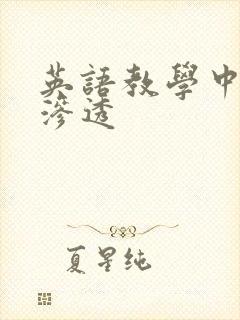 英語教學中
滲透
夏星純